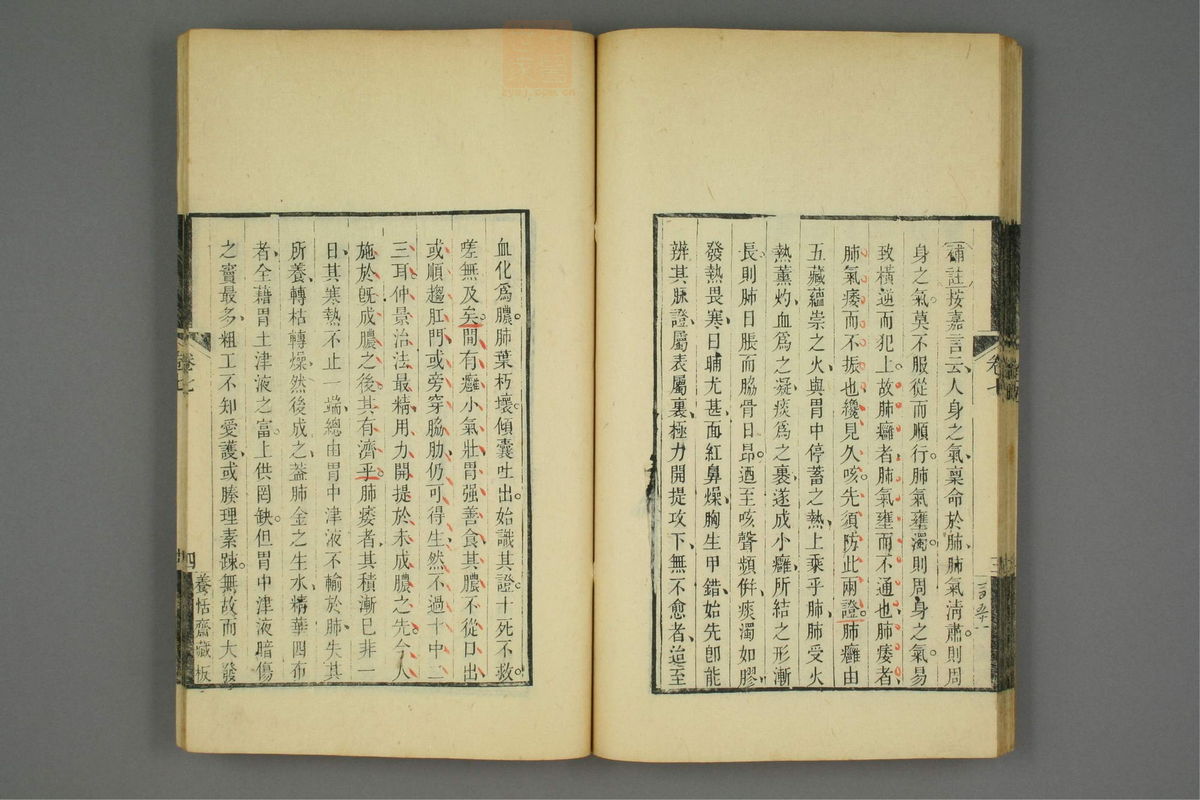 補註按嘉言云人身之氣稟命於肺肺氣清肅則周
身之氣莫不服從而順行肺氣壅濁則周身之氣易
致橫逆而犯上故肺癰者肺氣壅而不通也肺痿者
肺氣痿而不振也纔見久咳先須防此兩證肺癰由
五藏蘊崇之火與胃中停蓄之熱上乘乎肺肺受火
熱薰灼血爲之凝痰爲之裹遂成小癰所結之形漸
長則肺日脹而脇骨日昂迺至咳聲頻倂痰濁如膠
發熱畏寒日晡尤甚面紅鼻燥胸生甲錯始先卽能
辨其脉證屬表屬裏極力開提攻下無不愈者迨至
卷七
三
血化爲膿肺葉朽壞傾囊吐出始識其證十死不救
嗟無及矣間有癰小氣壯胃强善食其膿不從口出
或順趨肛門或旁穿脇肋仍可得生然不過十中二
三耳仲景治法最精用力開提於未成膿之先今人
施於旣成膿之後其有濟乎肺痿者其積漸已非一
日其寒熱不止一端總由胃中津液不輸於肺失其
所養轉枯轉燥然後成之蓋肺金之生水精華四布
者全藉胃土津液之富上供罔缺但胃中津液暗傷
之竇最多粗工不知愛護或腠理素踈無故而大發
卷七
四
養恬齋藏板